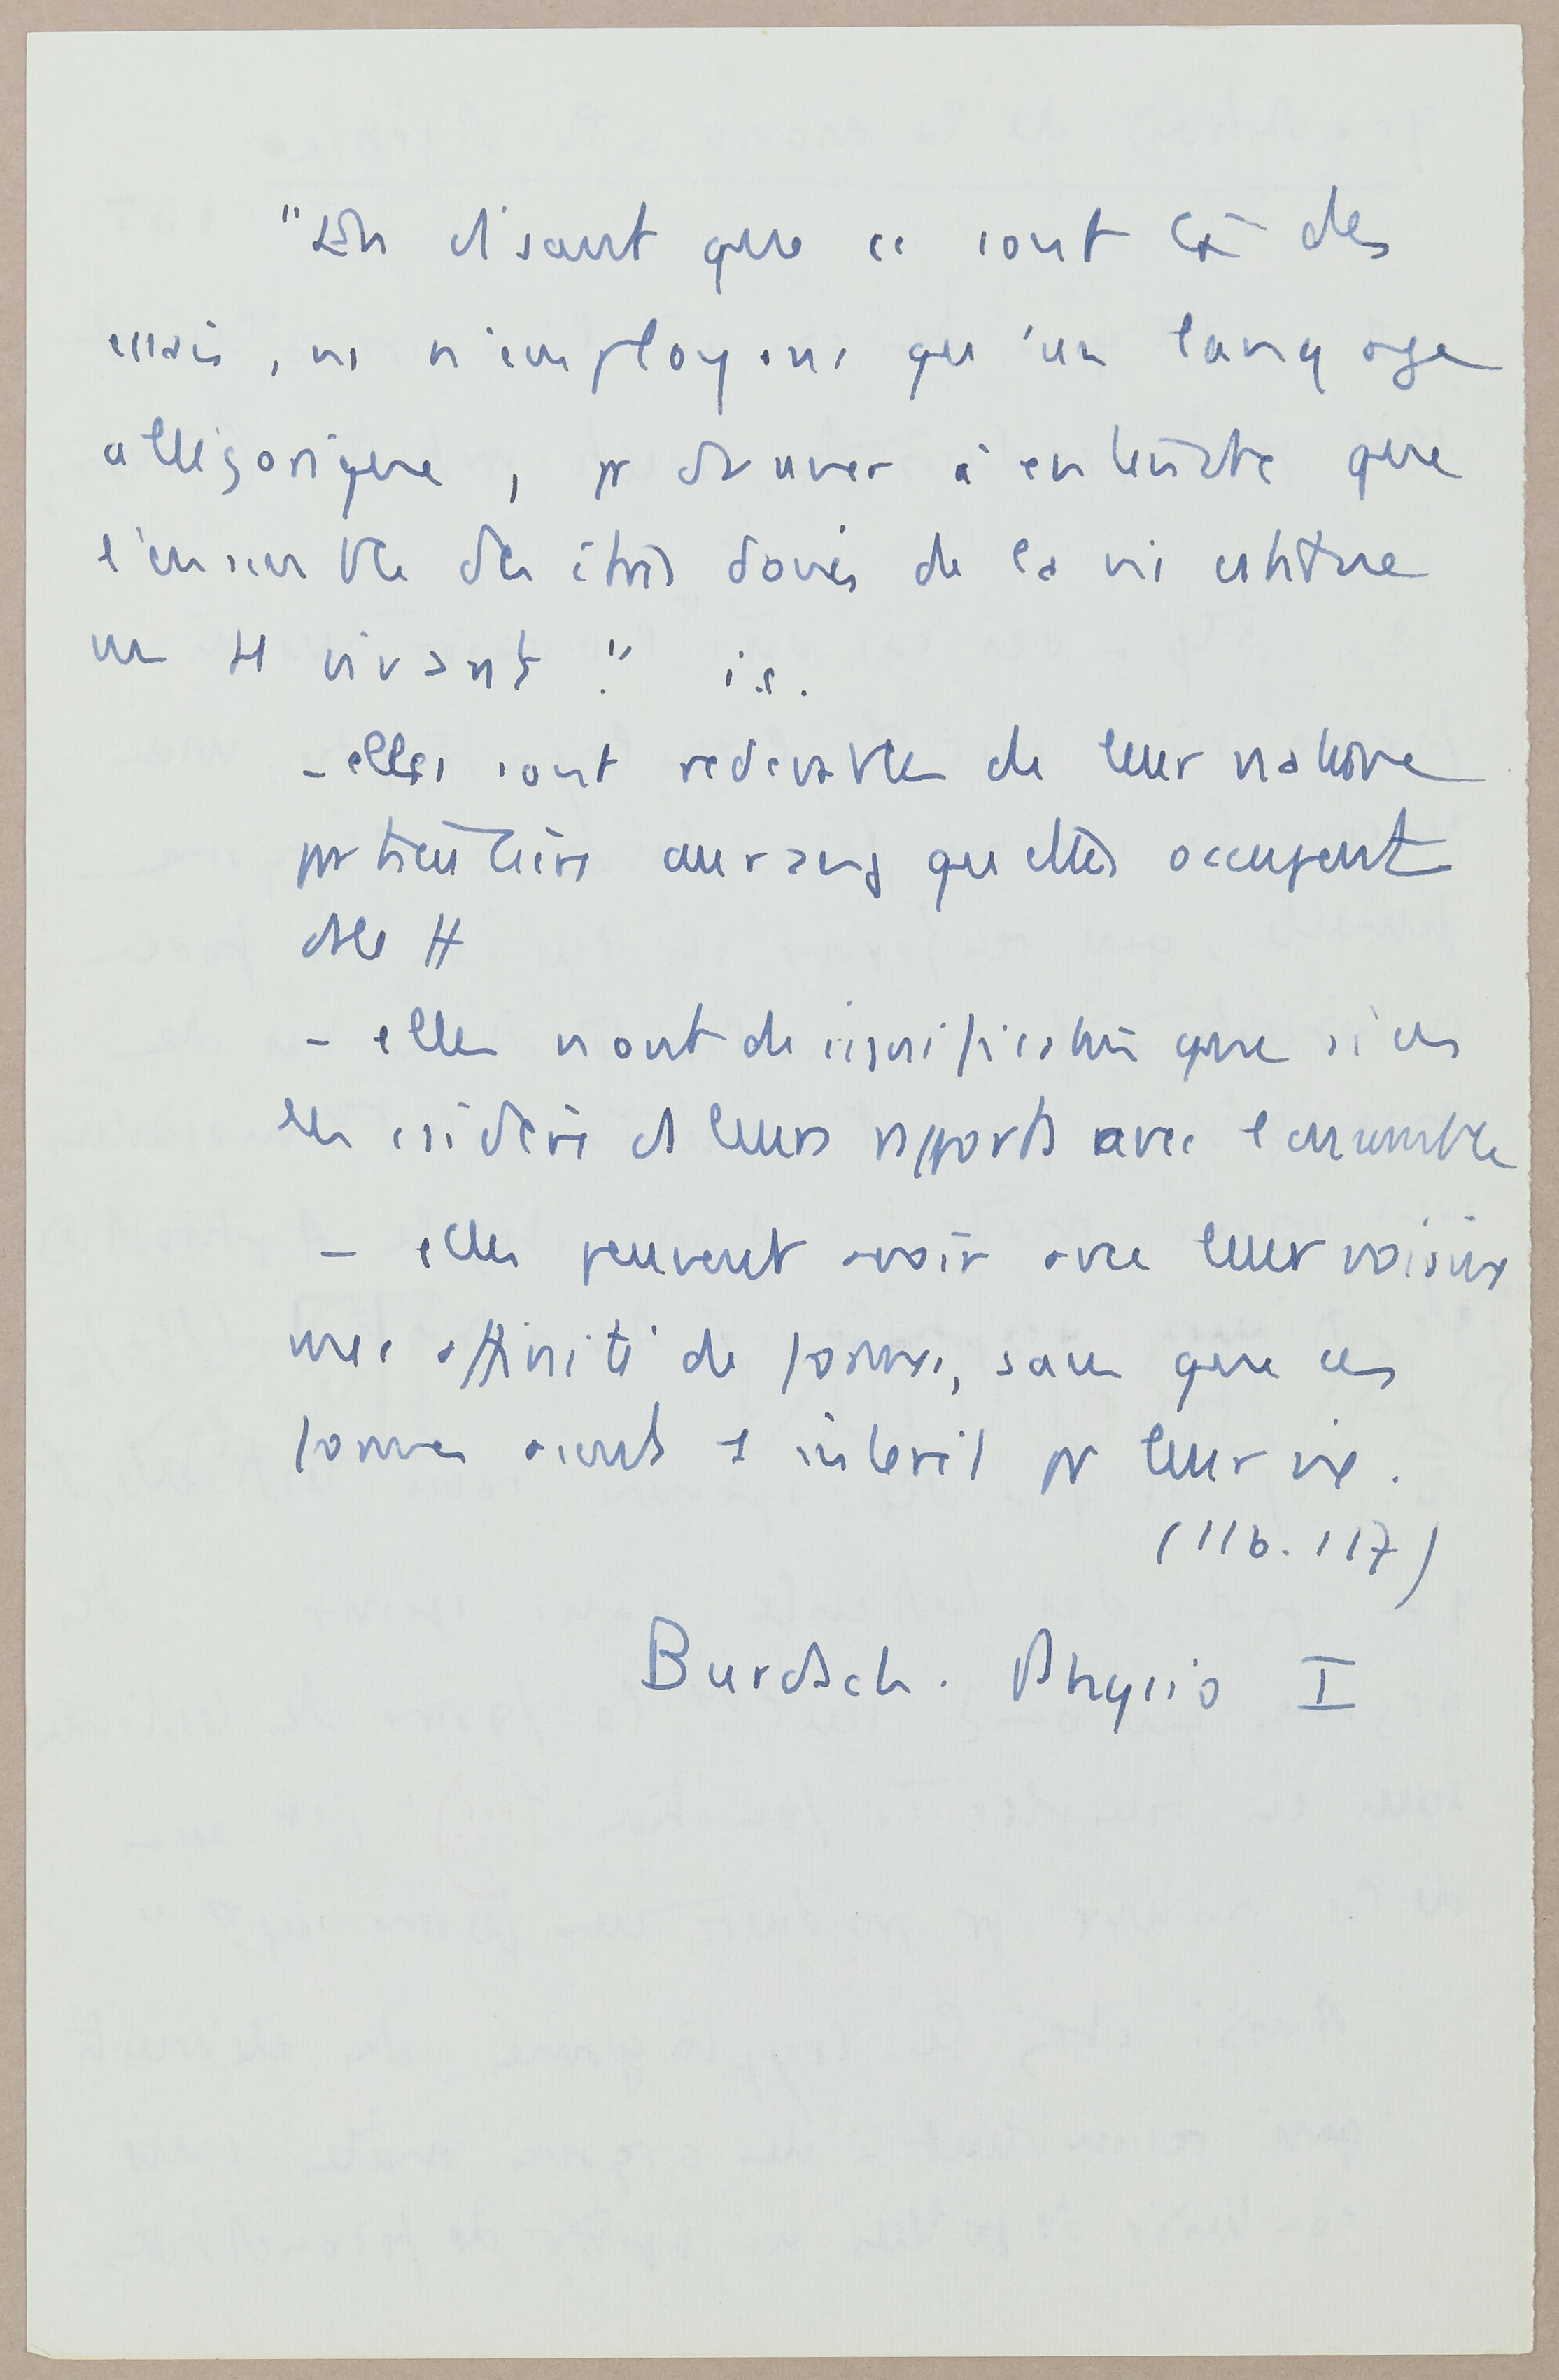 "En disant que ce sont là des
essais, ns n'employons qu'un langage
allégorique, pr donner à entendre que
l'ensemble des êtres doués de la vie constitue
un tt vivant." i.e.
- elles sont redevables de leur nature
particulière au rang qu'elles occupent
ds le tt
- elles n'ont de signification que si on
les considère ds leurs rapports avec l'ensemble
- elles peuvent avoir avec leur voisins
une affinité de formes, sans que ces
formes aient d'intérêt pr leur vie.
(116.117)
Burdach. Physio I